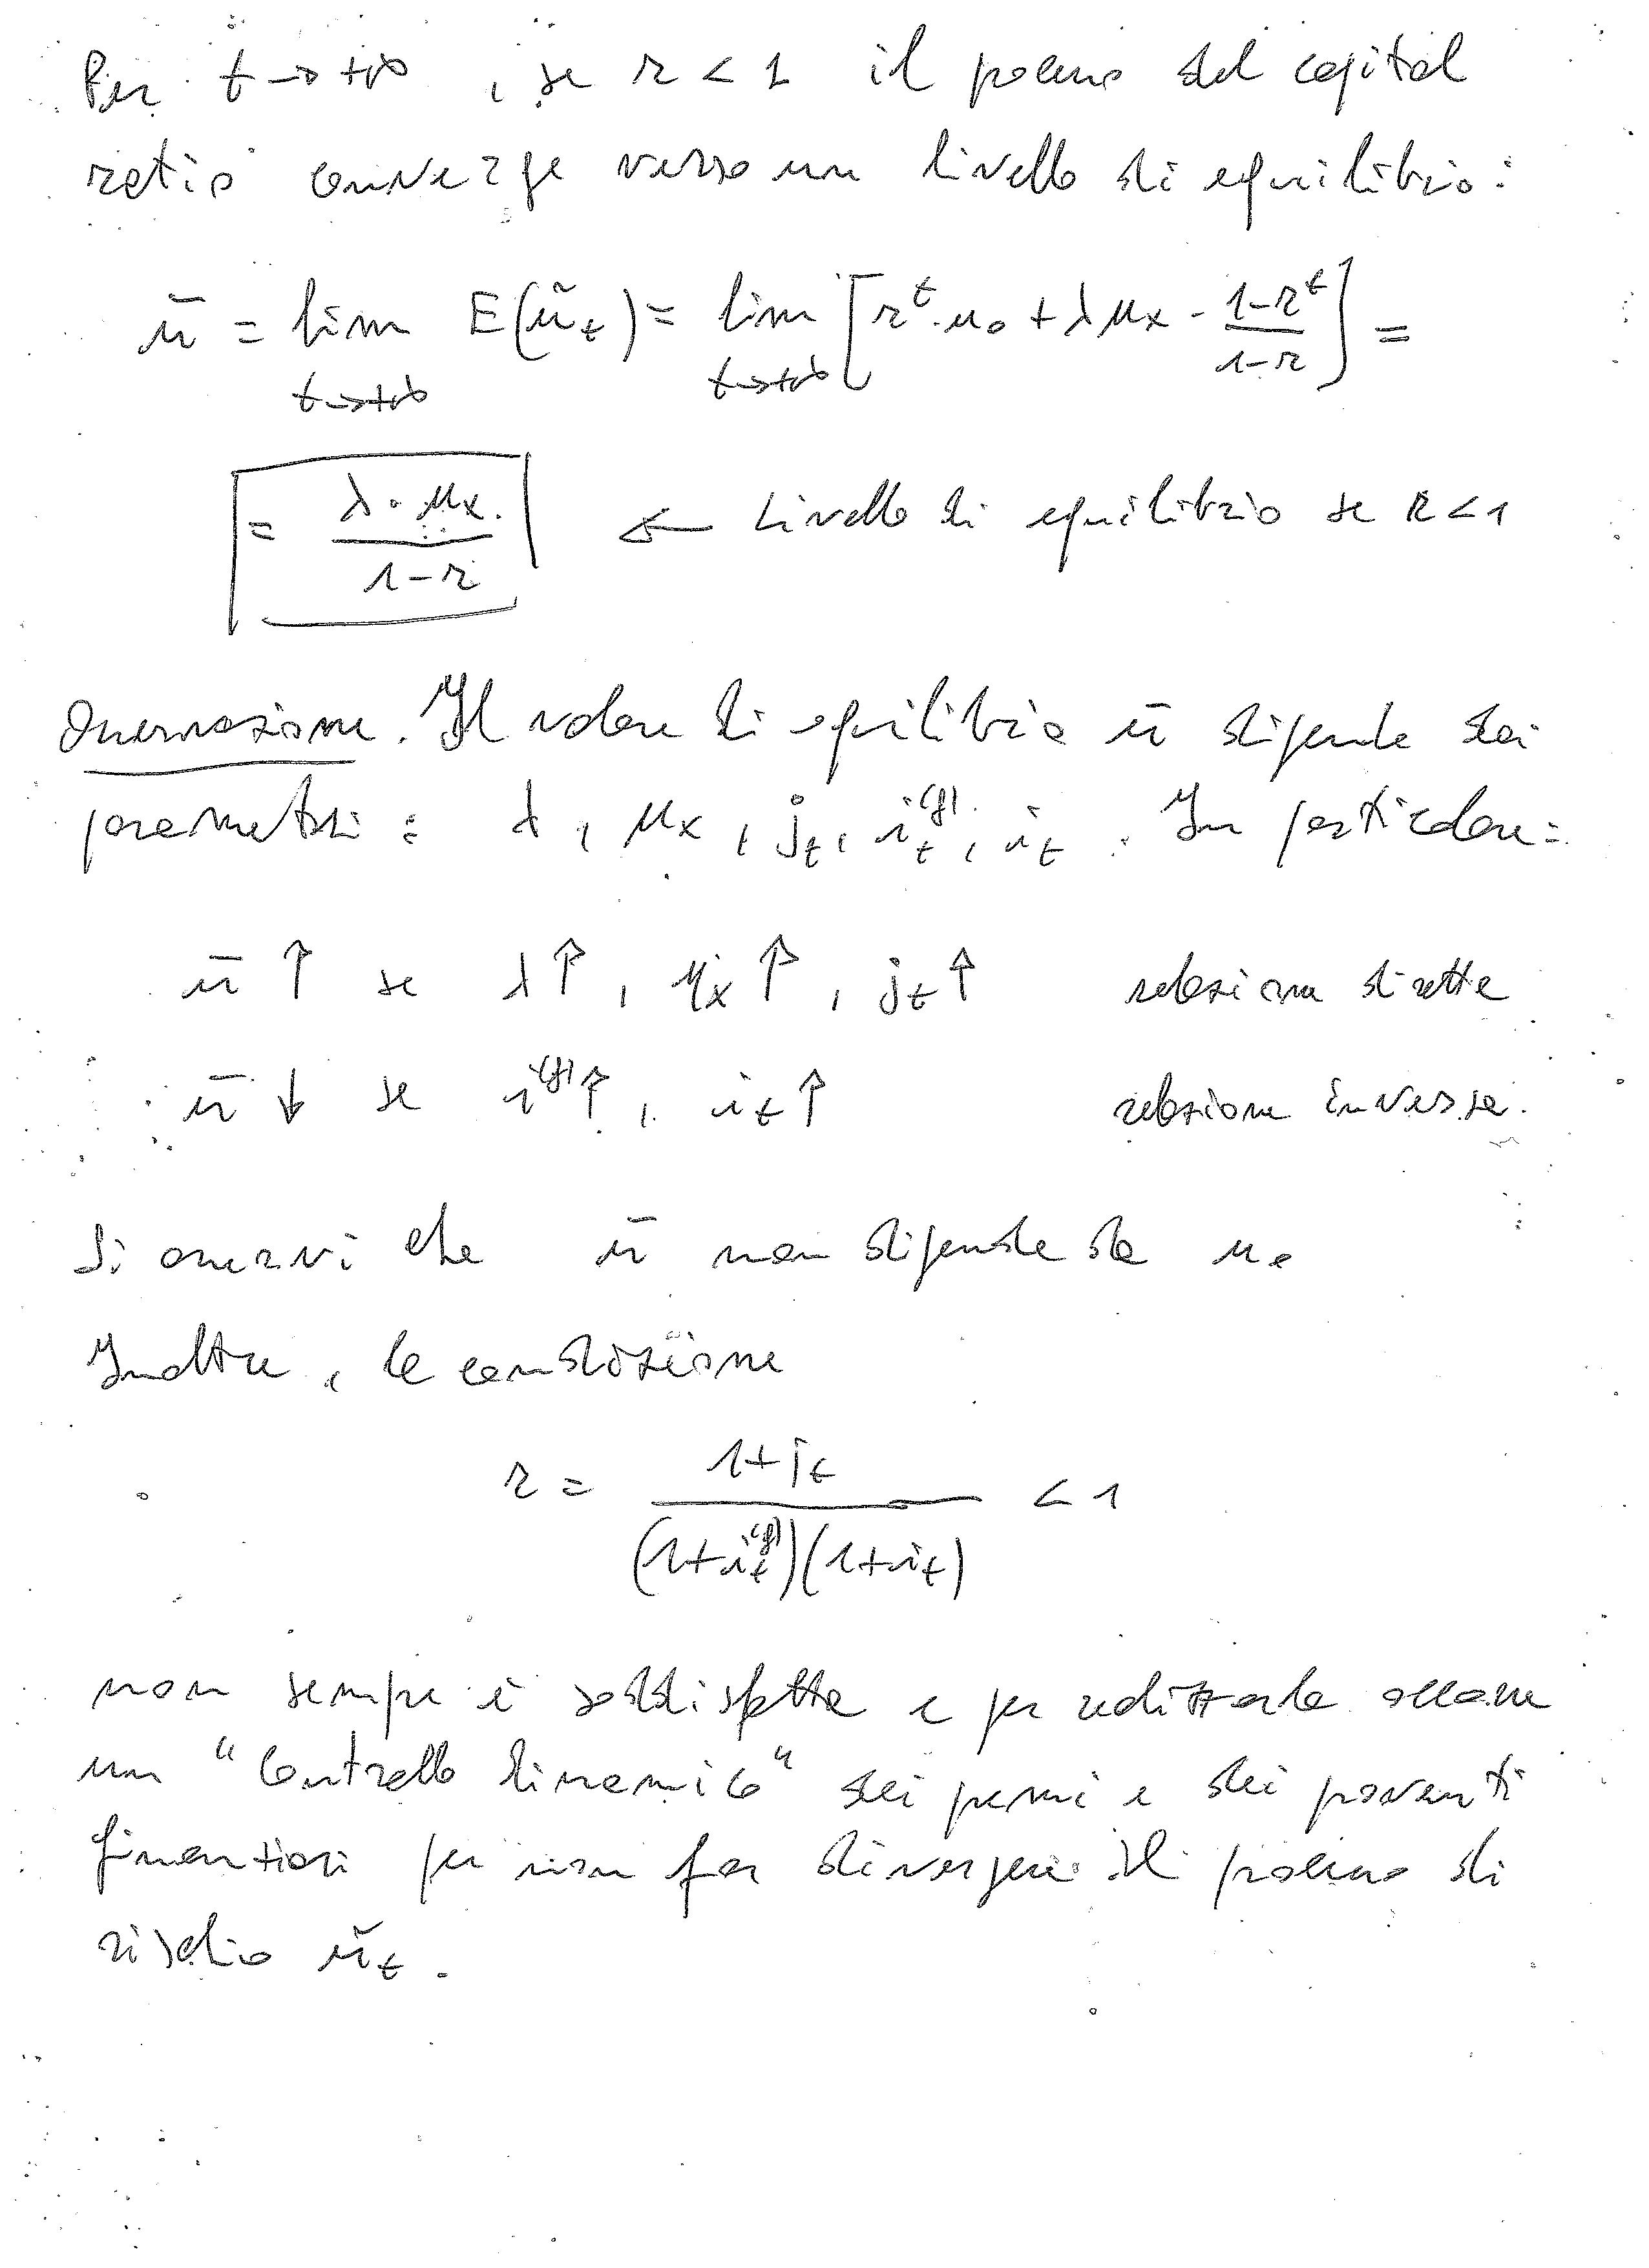 Per t → +∞, se r < 1 il processo del capital
ratio converge verso un livello di equilibrio:
ū = lim E(ũ_t) = lim [r^t · u_0 + λ μ_x · (1-r^t)/(1-r)] =
t→+∞ t→+∞
= (λ · μ_x)/(1-r) ← Livello di equilibrio se r < 1
Osservazione. Il valore di equilibrio ū dipende dai
parametri: λ, μ_x, j_t, i_t^(g), i_t. In particolare:
ū ↑ se λ↑, μ_x↑, j_t↑ relazione diretta
ū ↓ se i^(g)↑, i_t↑ relazione inversa.
Si osservi che ū non dipende da u_0
Inoltre, la condizione
r = (1+j_t)/((1+i_t^(g))(1+i_t)) < 1
non sempre è soddisfatta e per realizzarla occorre
un "Controllo dinamico" dei premi e dei proventi
finanziari per non far divergere il processo di
rischio ũ_t.